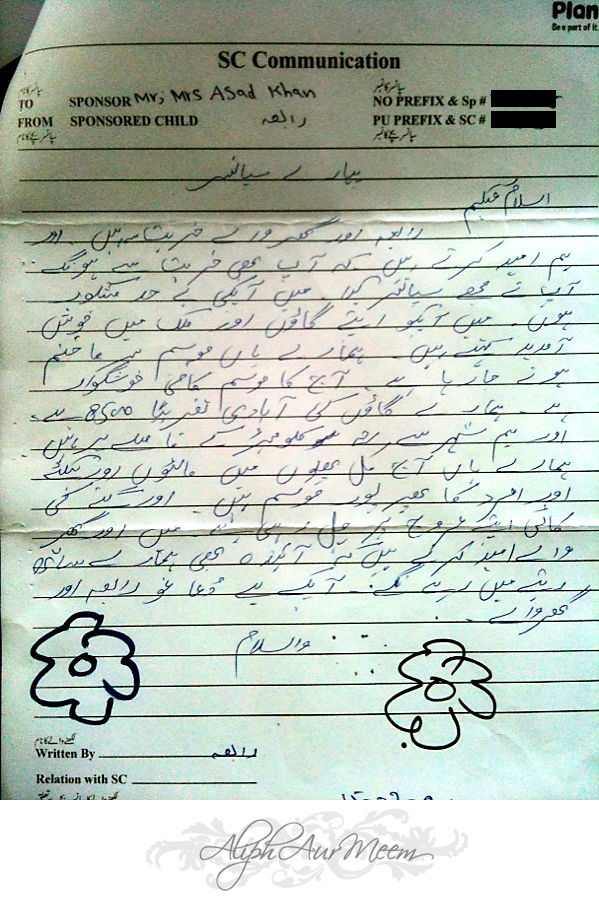 Plan
Be a part of it.
SC Communication
TO SPONSOR Mr; Mrs Asad Khan NO PREFIX & Sp #
FROM SPONSORED CHILD رابعہ PU PREFIX & SC #
پیارے سپانسر
اسلام علیکم
رابعہ اور گھر والے خریت سے ہیں ۔ اور
ہم امید کرتے ہیں کہ آپ بھی خریت سے ہونگے
آپ نے مجھے سپانسر کیا میں آپکی بے حد مشکور
ہوں میں آپکو اپنے گاؤں اور ملک میں خوش
آمدید کہتے ہیں ۔ ہمارے ہاں موسم سرما ختم
ہونے جا رہا ہے ۔ آج کا موسم کافی خوشگوار
ہے ہمارے گاؤں کی آبادی تقریبًا 8500 ہے
اور ہم شہر سے کلومیٹر کے فاصلے پر ہیں
ہمارے ہاں آج کل پھلوں میں مالٹوں اور
اور امرود کا بھر پور موسم ہیں ۔ اور گنے کی
کٹائی اپنے عروج پر چل رہی ہے میں اور گھر
والے امید کرتے ہیں کہ آئندہ بھی ہمارے ساتھ
رہیں گے ۔ آپکے لیے دعا گو رابعہ اور
گھر والے
والسلام
Written By رابعہ
Relation with SC
Aliph Aur Meem